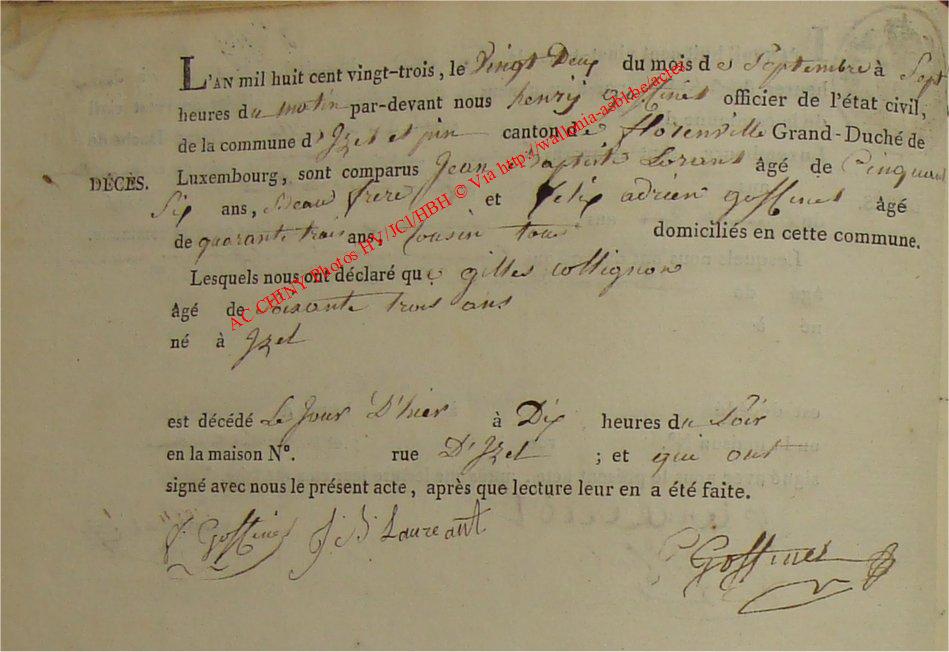 L'AN mil huit cent vingt-trois, le Vingt Deux du mois de Septembre à Sept
heures du matin par-devant nous henrij Goffinet officier de l'état civil,
de la commune d'Izel et pin canton de florenville Grand-Duché de
DÉCÈS. Luxembourg, sont comparus Jean Baptiste Lorent âgé de Cinquant
Six ans, Beau frere et felix adrien goffinet âgé
de quarante trois ans, Cousin tous domiciliés en cette commune.
Lesquels nous ont déclaré que gilles collignon
âgé de soixante trois ans
né à Izel
est décédé Le Jour D'hier à Dix heures du Soir
en la maison N°. rue D'Izel ; et qui ont
signé avec nous le présent acte, après que lecture leur en a été faite.
f. Goffinet J B Laureant
Goffinet
AC CHINY Photos HV/JCl/HBH © Via http://wallonia-asbl.be/actes